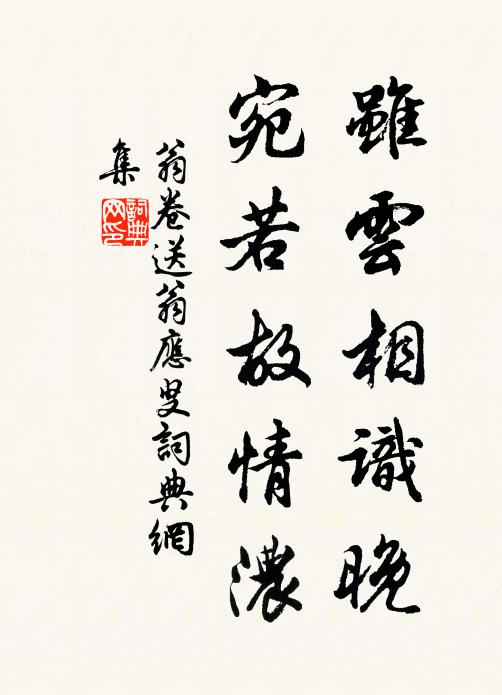 雖雲相識晚
宛若故情濃
翁卷送翁應叟詞典網
集
詞典
网印